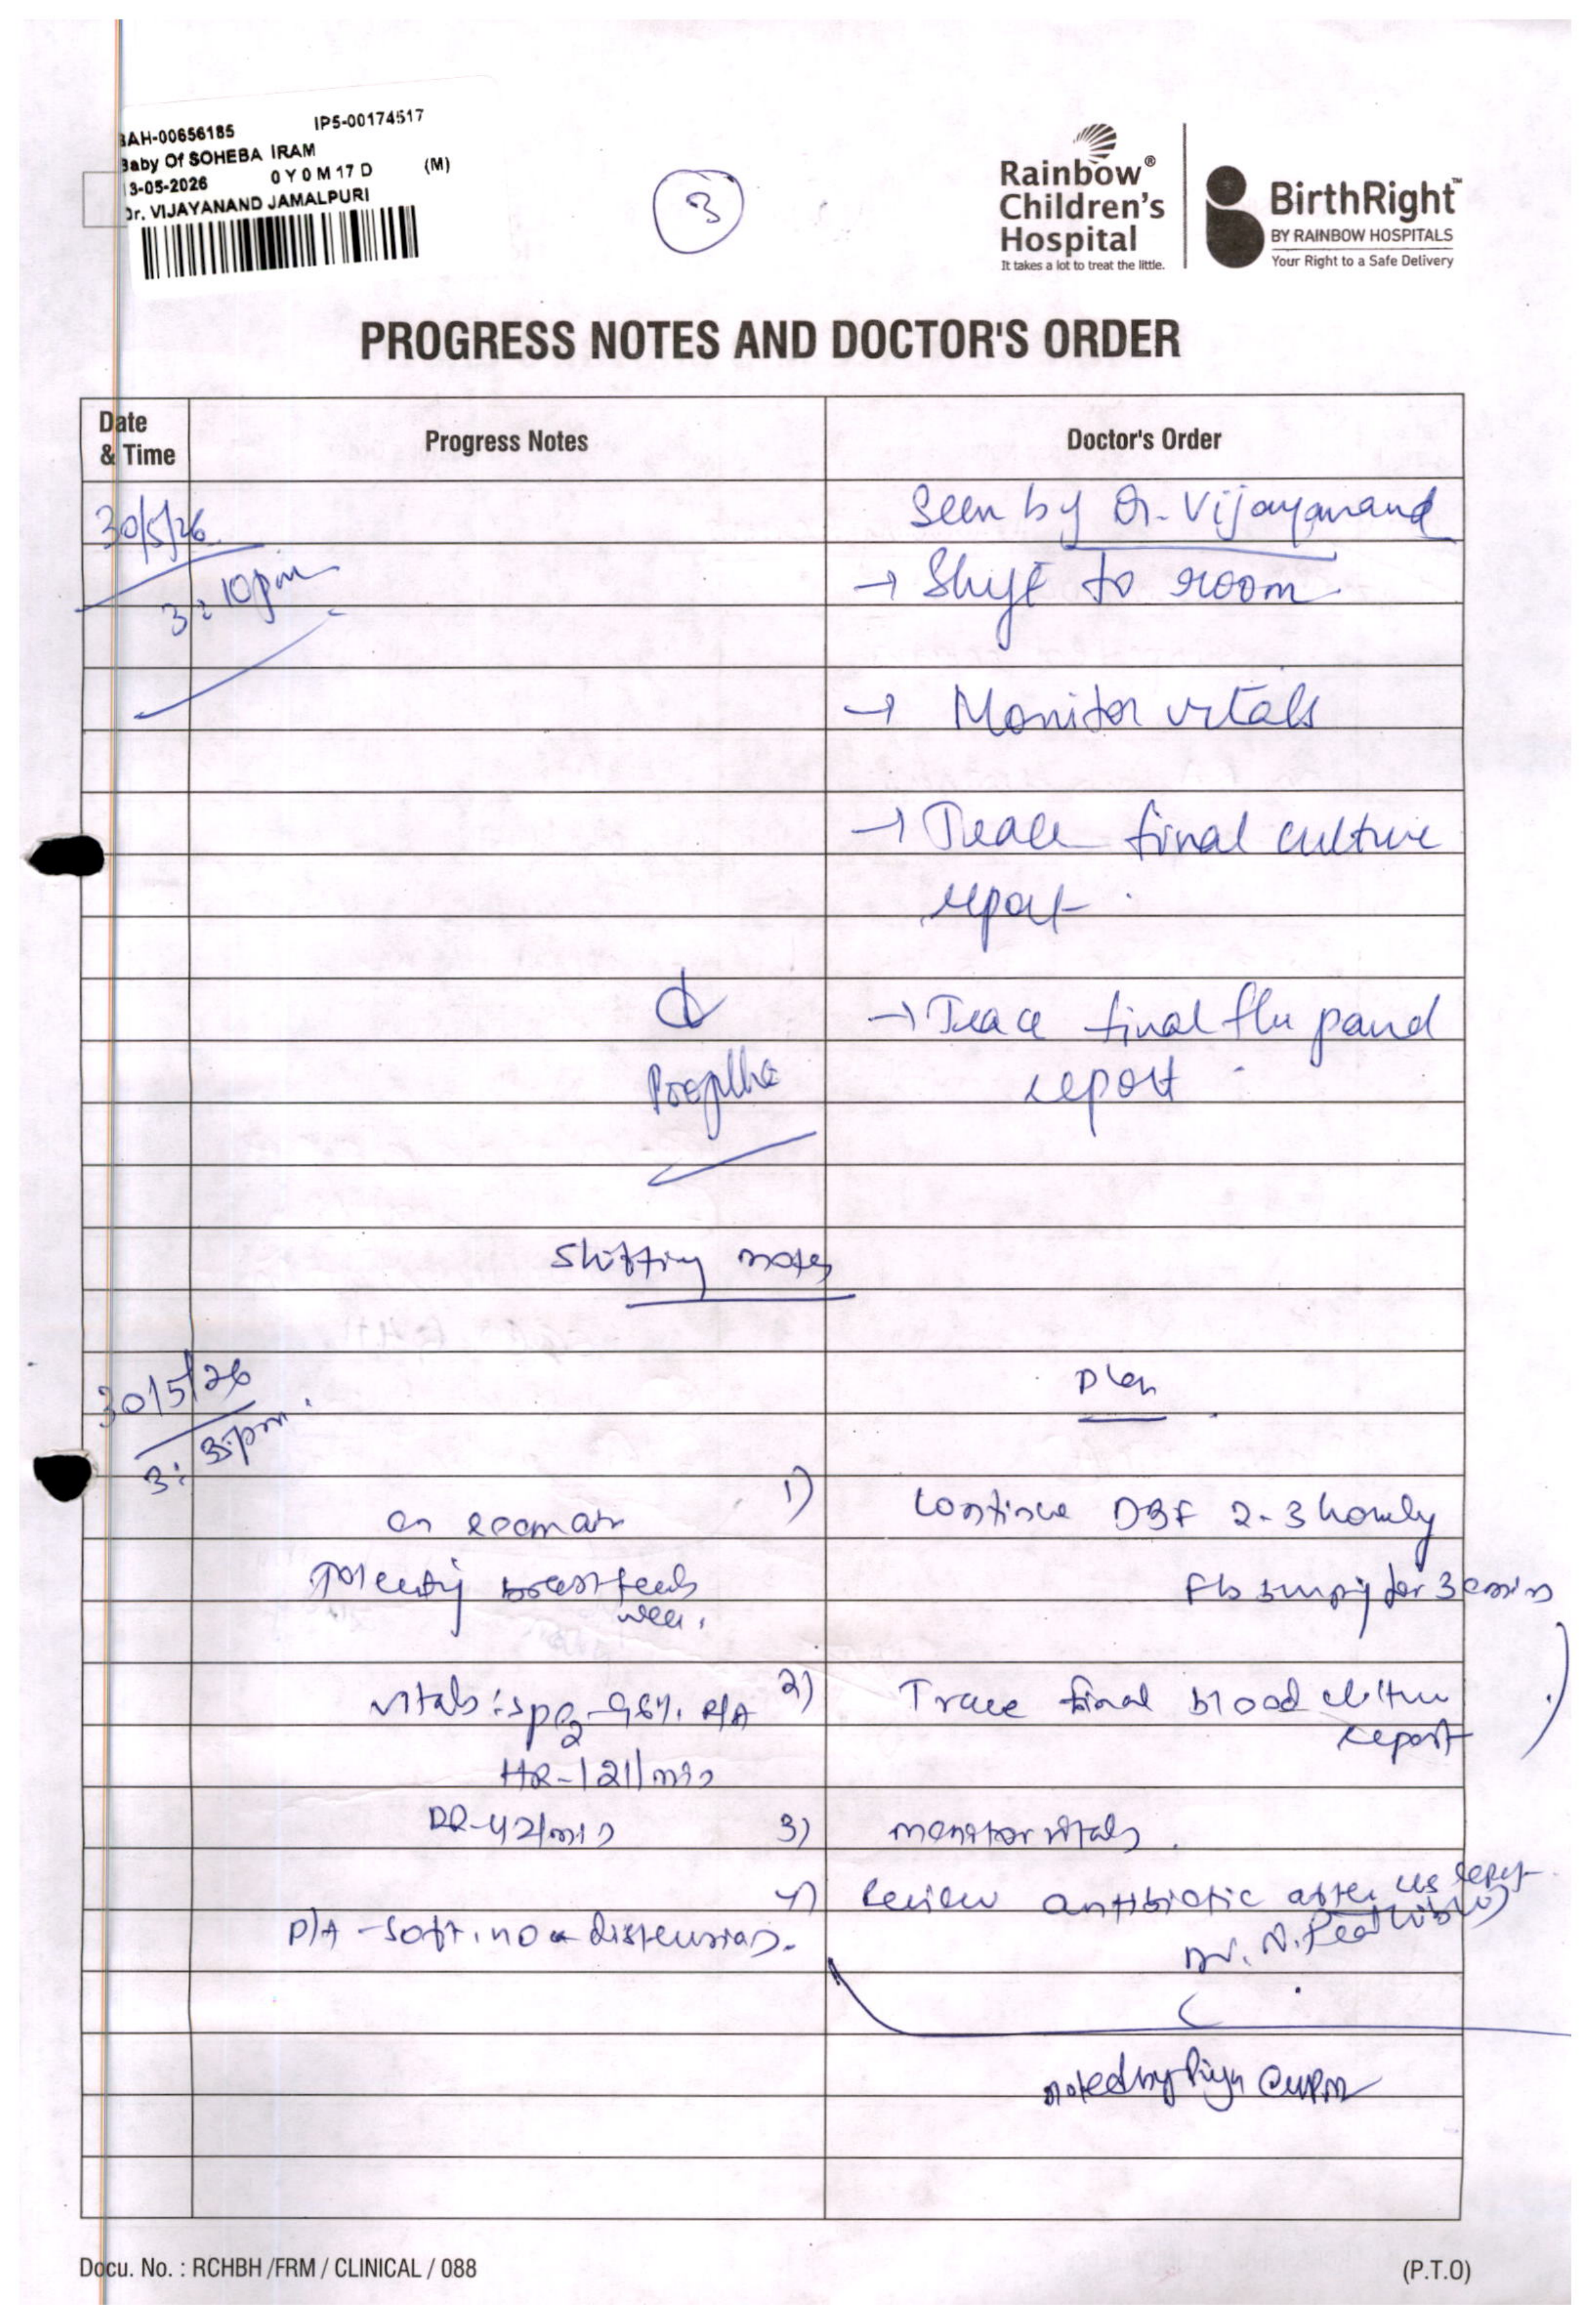 BAH-00656185 IP5-00174517
Baby Of SOHEBA IRAM
13-05-2026 0 Y 0 M 17 D (M)
Dr. VIJAYANAND JAMALPURI
3
Rainbow®
Children's
Hospital
It takes a lot to treat the little.
BirthRight™
BY RAINBOW HOSPITALS
Your Right to a Safe Delivery
PROGRESS NOTES AND DOCTOR'S ORDER
Date
& Time
Progress Notes
Doctor's Order
30/5/26
3:10pm
Seen by Dr. Vijayanand
→ Shift to room
→ Monitor vitals
→ Trace final culture
report.
→ Trace final flu panel
report.
Shifting notes
30/5/26
3:35pm.
Plan
on room air
1) Continue DBF 2-3 hourly
Tolerating breast feeds
well.
Fb burping for 30 mins
Vitals: SpO2-96%. R/A
2) Trace final blood culture
report
HR-121/min
RR-42/min
3) monitor vitals.
4) Review antibiotic after report
P/A - Soft, no distension.
Dr. N.
Noted by Priya @4PM
Docu. No. : RCHBH /FRM / CLINICAL / 088
(P.T.O)